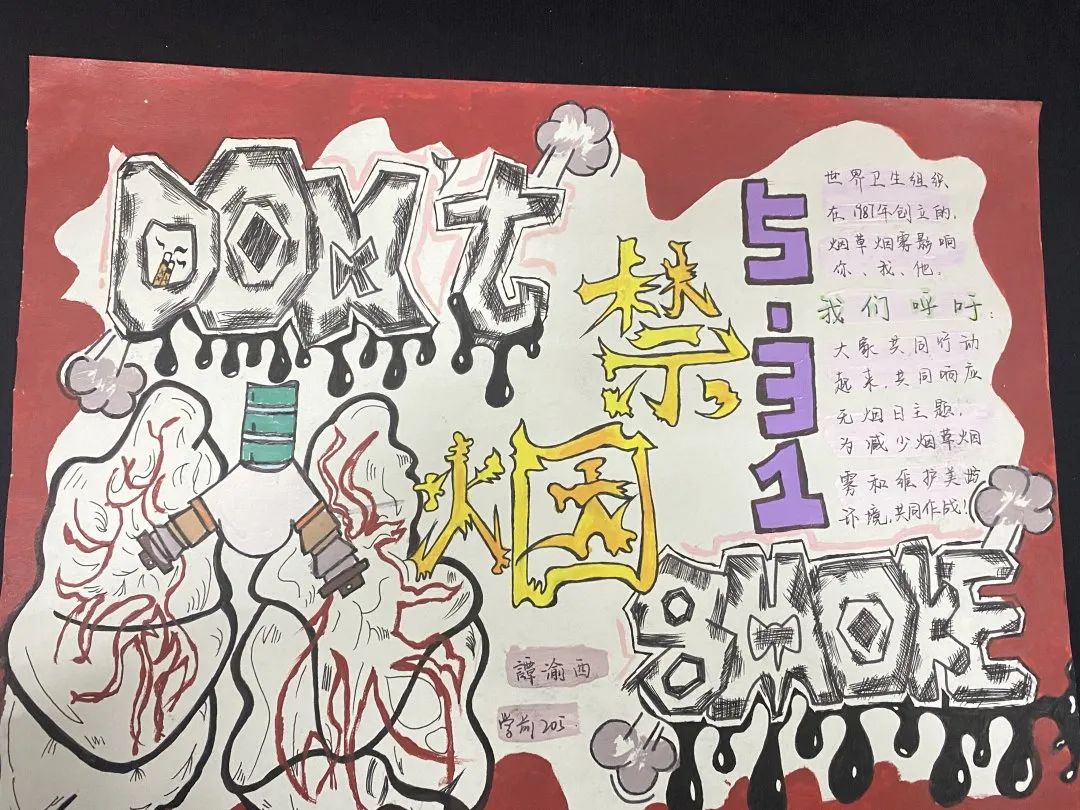 DON't
禁
烟
5.31
世界卫生组织
在1987年创立的,
烟草烟雾影响
你、我、他。
我们呼吁:
大家共同行动
起来,共同响应
无烟日主题,
为减少烟草烟
雾和维护美
环境,共同作
SMOKE
譚渝西
学前205